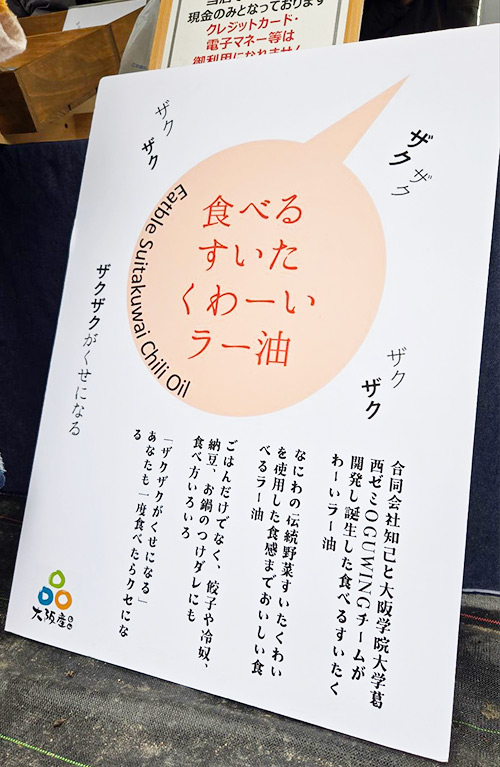 現金のみとなっております
クレジットカード・
電子マネー等は
御利用になれません
ザク
ザク
ザク
ザク
食べる
すいた
くわーい
ラー油
Eatble Suitakuwai Chili Oil
ザクザクがくせになる
ザク
ザク
合同会社知己と大阪学院大学葛
西ゼミOGUWINGチームが
開発し誕生した食べるすいたく
わーいラー油
なにわの伝統野菜すいたくわい
を使用した食感までおいしい食
べるラー油
ごはんだけでなく、餃子や冷奴、
納豆、お鍋のつけダレにも
食べ方いろいろ
「ザクザクがくせになる」
あなたも一度食べたらクセにな
る
大阪産